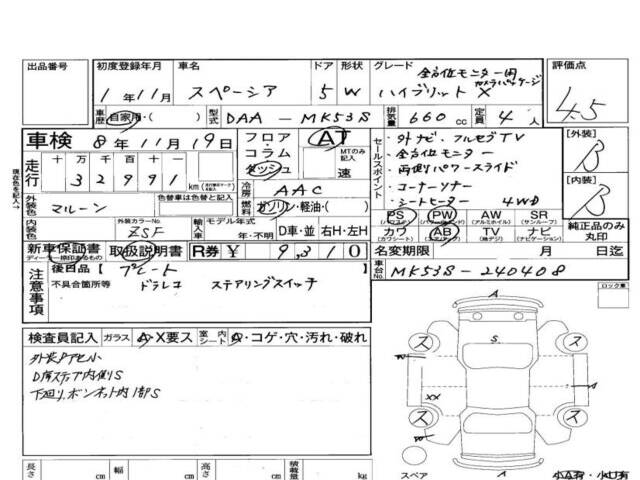 出品番号 初度登録年月 車名 ドア 形状 グレード 評価点
1年11月 スペーシア 5 W 全方位モニター用カメラパッケージ
ハイブリットX 4.5
車歴 自家用・( ) 型式 DAA - MK53S 排気量 660 cc 定員 4人
車検 8年 11月 19日 フロア・コラム・ダッシュ AT
MTのみ記入 速
走行 十万千百十一
32991 km
現在色を記入→
セールスポイント
・外ナビ、フルセグTV
・全方位モニター
・両側パワースライド
・コーナーソナー
・シートヒーター 4WD
[外装] B
[内装] B
外装色 マルーン 色替車は色替と記入
冷房 AAC
燃料 ガソリン・軽油・( )
内装色 外装カラーNo. ZSF 輸入車 モデル年式 年・不明 D車・並 右H・左H
PS PW AW SR
(パワステ) (パワーウインドウ) (アルミホイル) (サンルーフ)
カワ AB TV ナビ
(カワシート) (エアバッグ) (地デジ) (ナビゲーション)
純正品のみ丸印
新車保証書 取扱説明書 R券 ¥ 9,310
名変期限 月 日迄
車台No. MK53S-240408
注意事項 後日品【プレート
不具合箇所等 ドラレコ ステアリングスイッチ
ロック車
検査員記入 ガラス A・X要ス 室内シート A・コゲ・穴・汚れ・破れ
外装Pアセ小
D席ステップ内側S
下廻り、ボンネット内1部S
A
ス ス
S
W A
XX
ス ス
W
A
スペア 小A有・小U有
長さ cm 幅 cm 高さ cm 積載量 kg